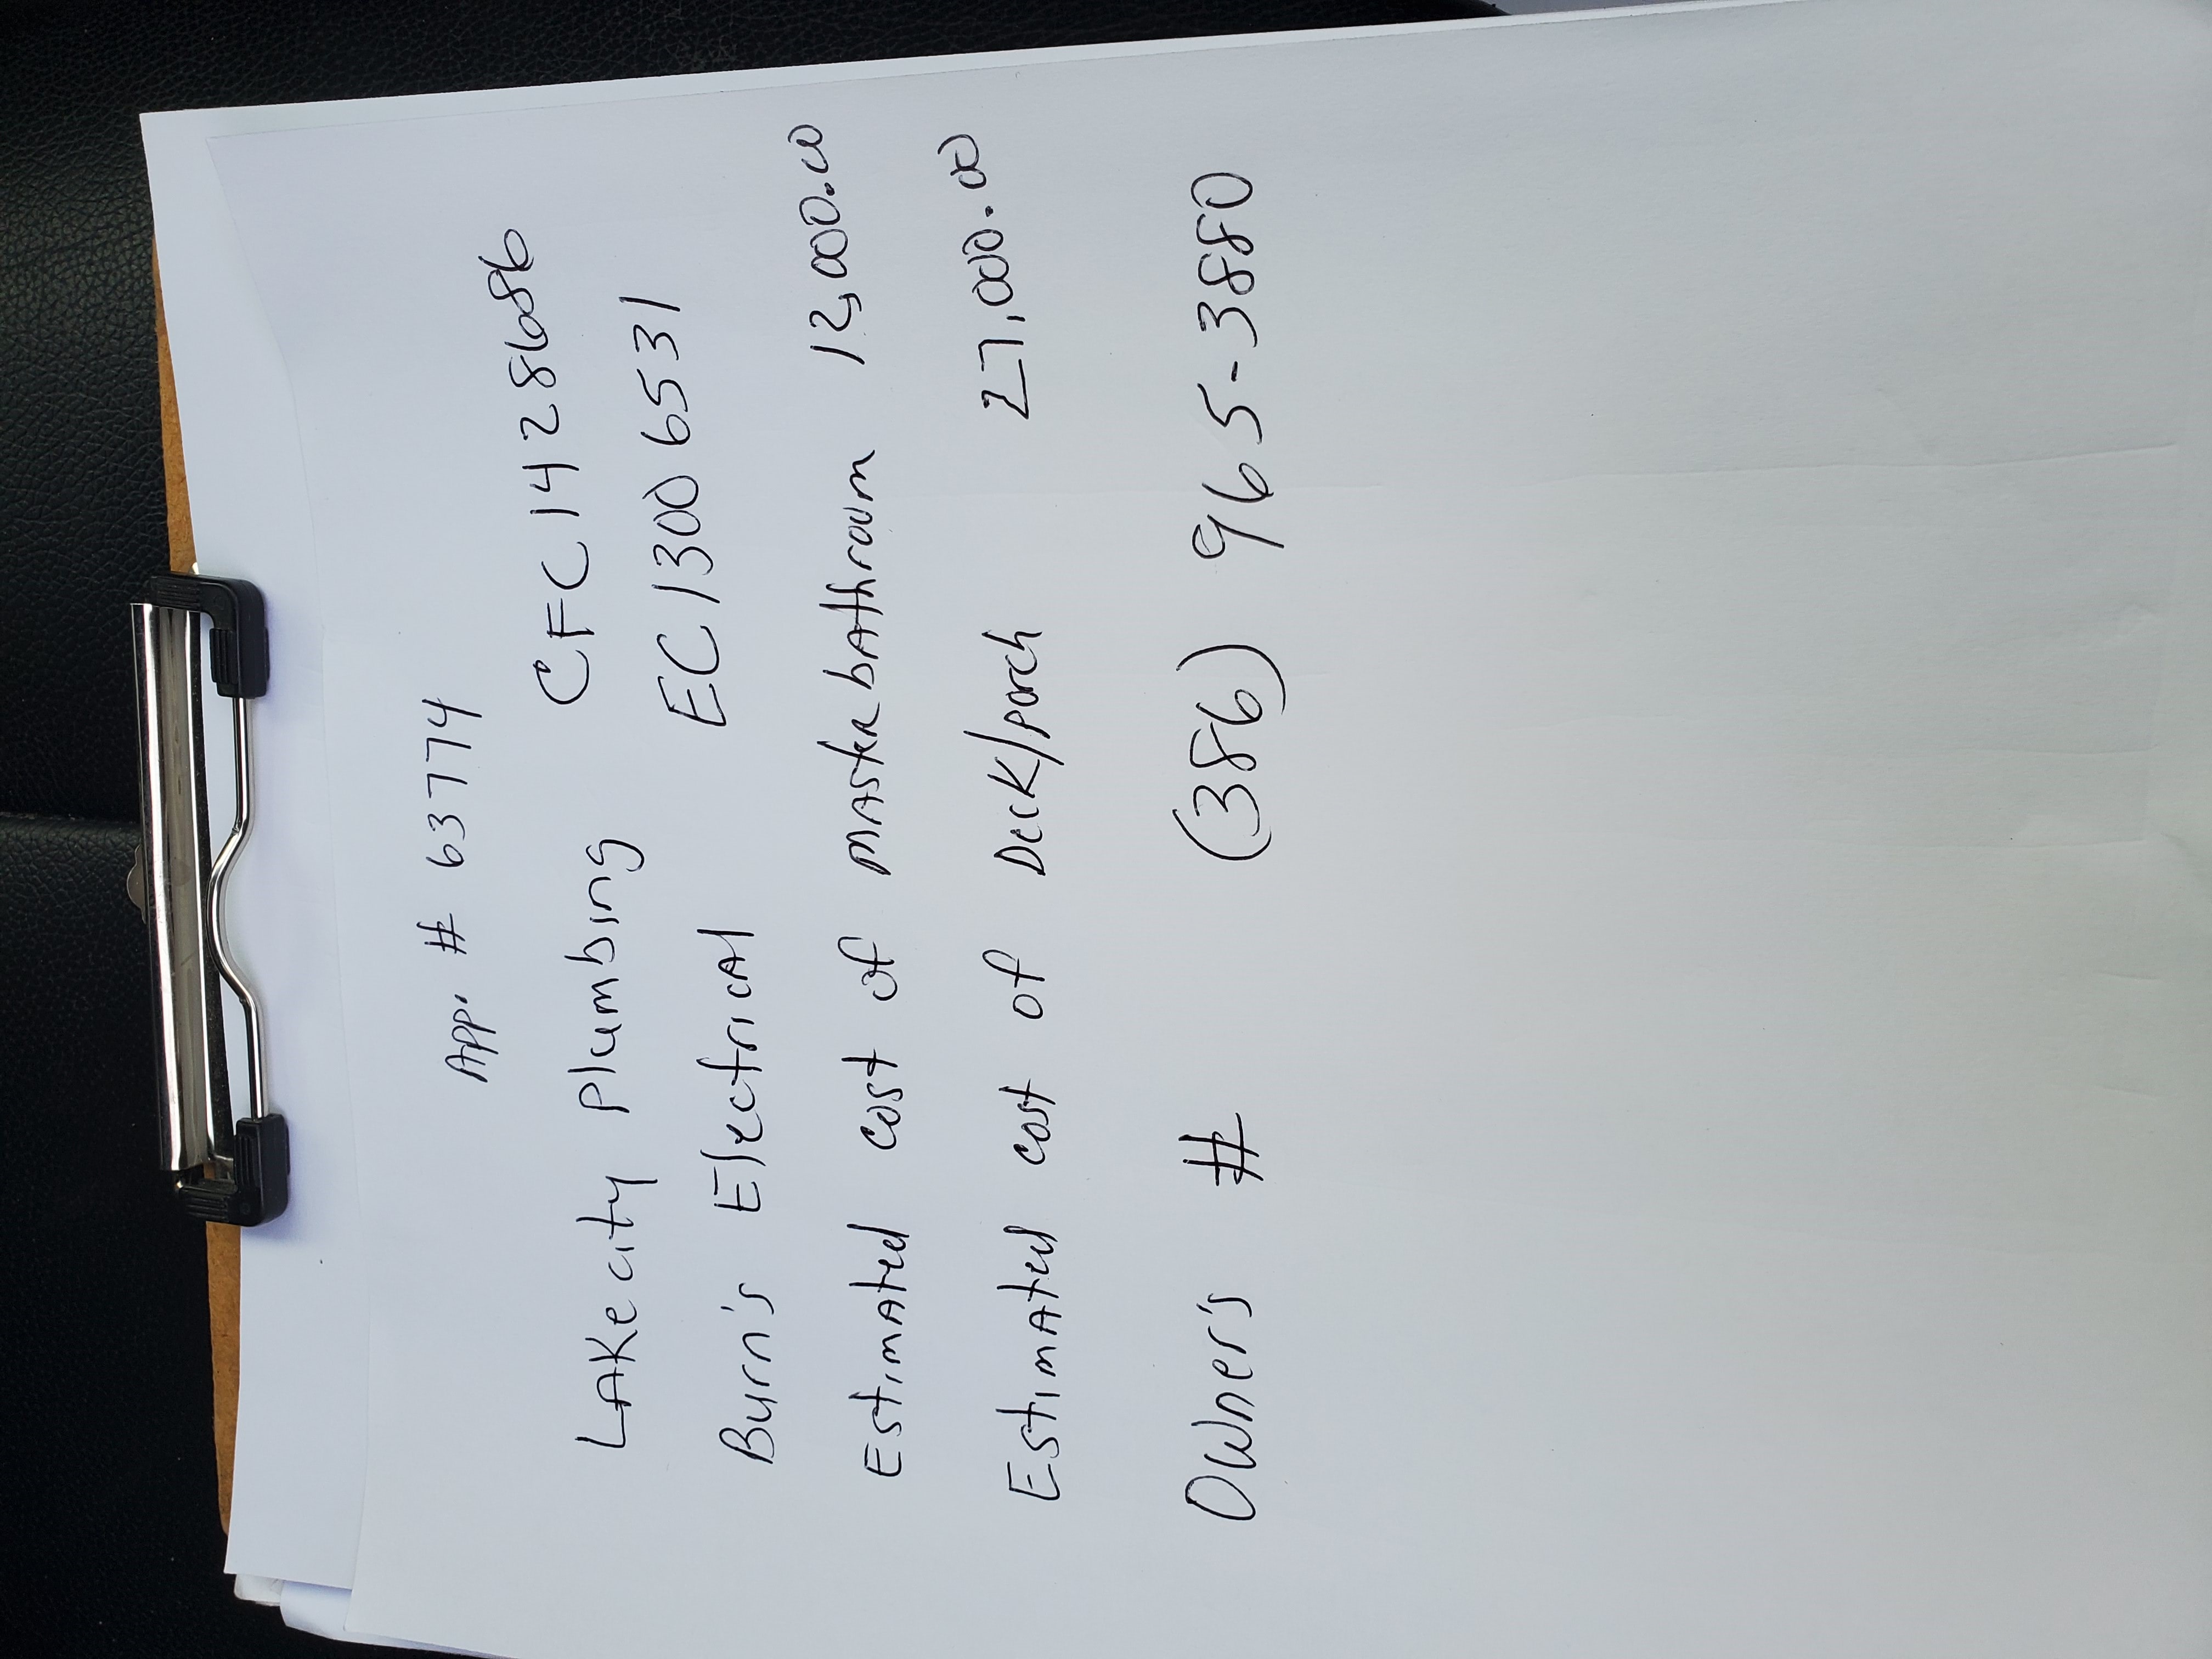 App. # 63774
LAKE city Plumbing CFC1428686
Burn's Electrical EC13006531
Estimated cost of master bathroom 12,000.00
Estimated cost of Deck/porch 27,000.00
Owner's # (386) 965-3880